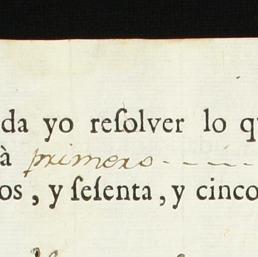 da yo reſolver lo q
à primero - - - -
os, y ſeſenta, y cinco